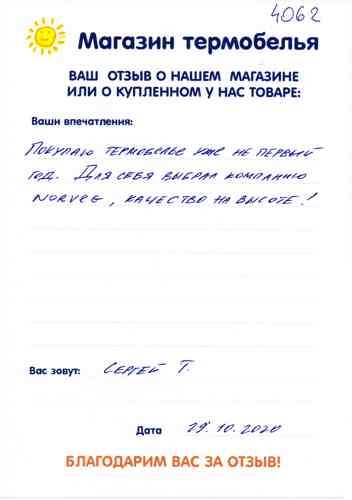 4062
Магазин термобелья
ВАШ ОТЗЫВ О НАШЕМ МАГАЗИНЕ
ИЛИ О КУПЛЕННОМ У НАС ТОВАРЕ:
Ваши впечатления:
Покупаю термобелье уже не первый
год. Для себя выбрал компанию
NORVEG, качество на высоте!
Вас зовут: Сергей Т.
Дата 29.10.2020
БЛАГОДАРИМ ВАС ЗА ОТЗЫВ!